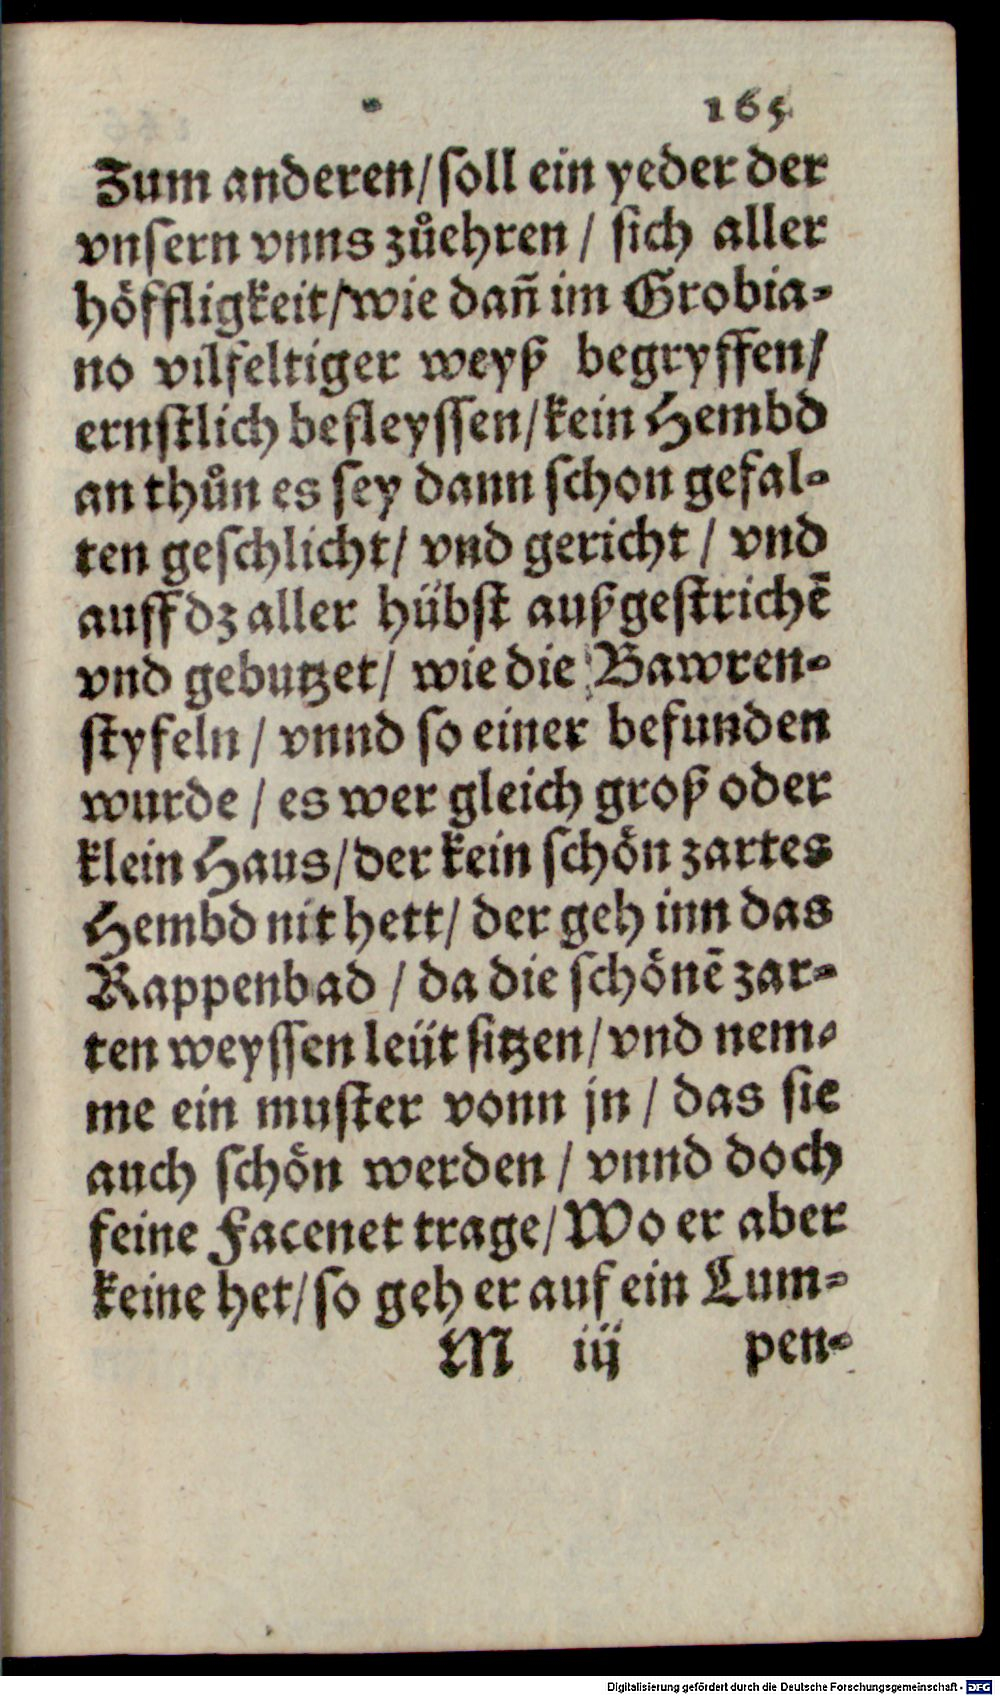 165
Zum anderen/ soll ein yeder der
vnsern vnns zůehren / sich aller
höffligkeit/ wie dañ im Grobia-
no vilfeltiger weyß begryffen/
ernstlich befleyssen/ kein Hembd
an thůn es sey dann schon gefal-
ten geschlicht/ vnd gericht / vnd
auff dz aller hübst außgestrichē
vnd gebutzet/ wie die Bawren-
styfeln / vnnd so einer befunden
wurde / es wer gleich groß oder
klein Haus/ der kein schön zartes
Hembd nit hett/ der geh inn das
Rappenbad / da die schönē zar-
ten weyssen leüt sitzen/ vnd nem-
me ein muster vonn jn / das sie
auch schön werden / vnnd doch
feine Facenet trage/ Wo er aber
keine het/ so geh er auf ein Lum-
M iij pen-
Digitalisierung gefördert durch die Deutsche Forschungsgemeinschaft - DFG